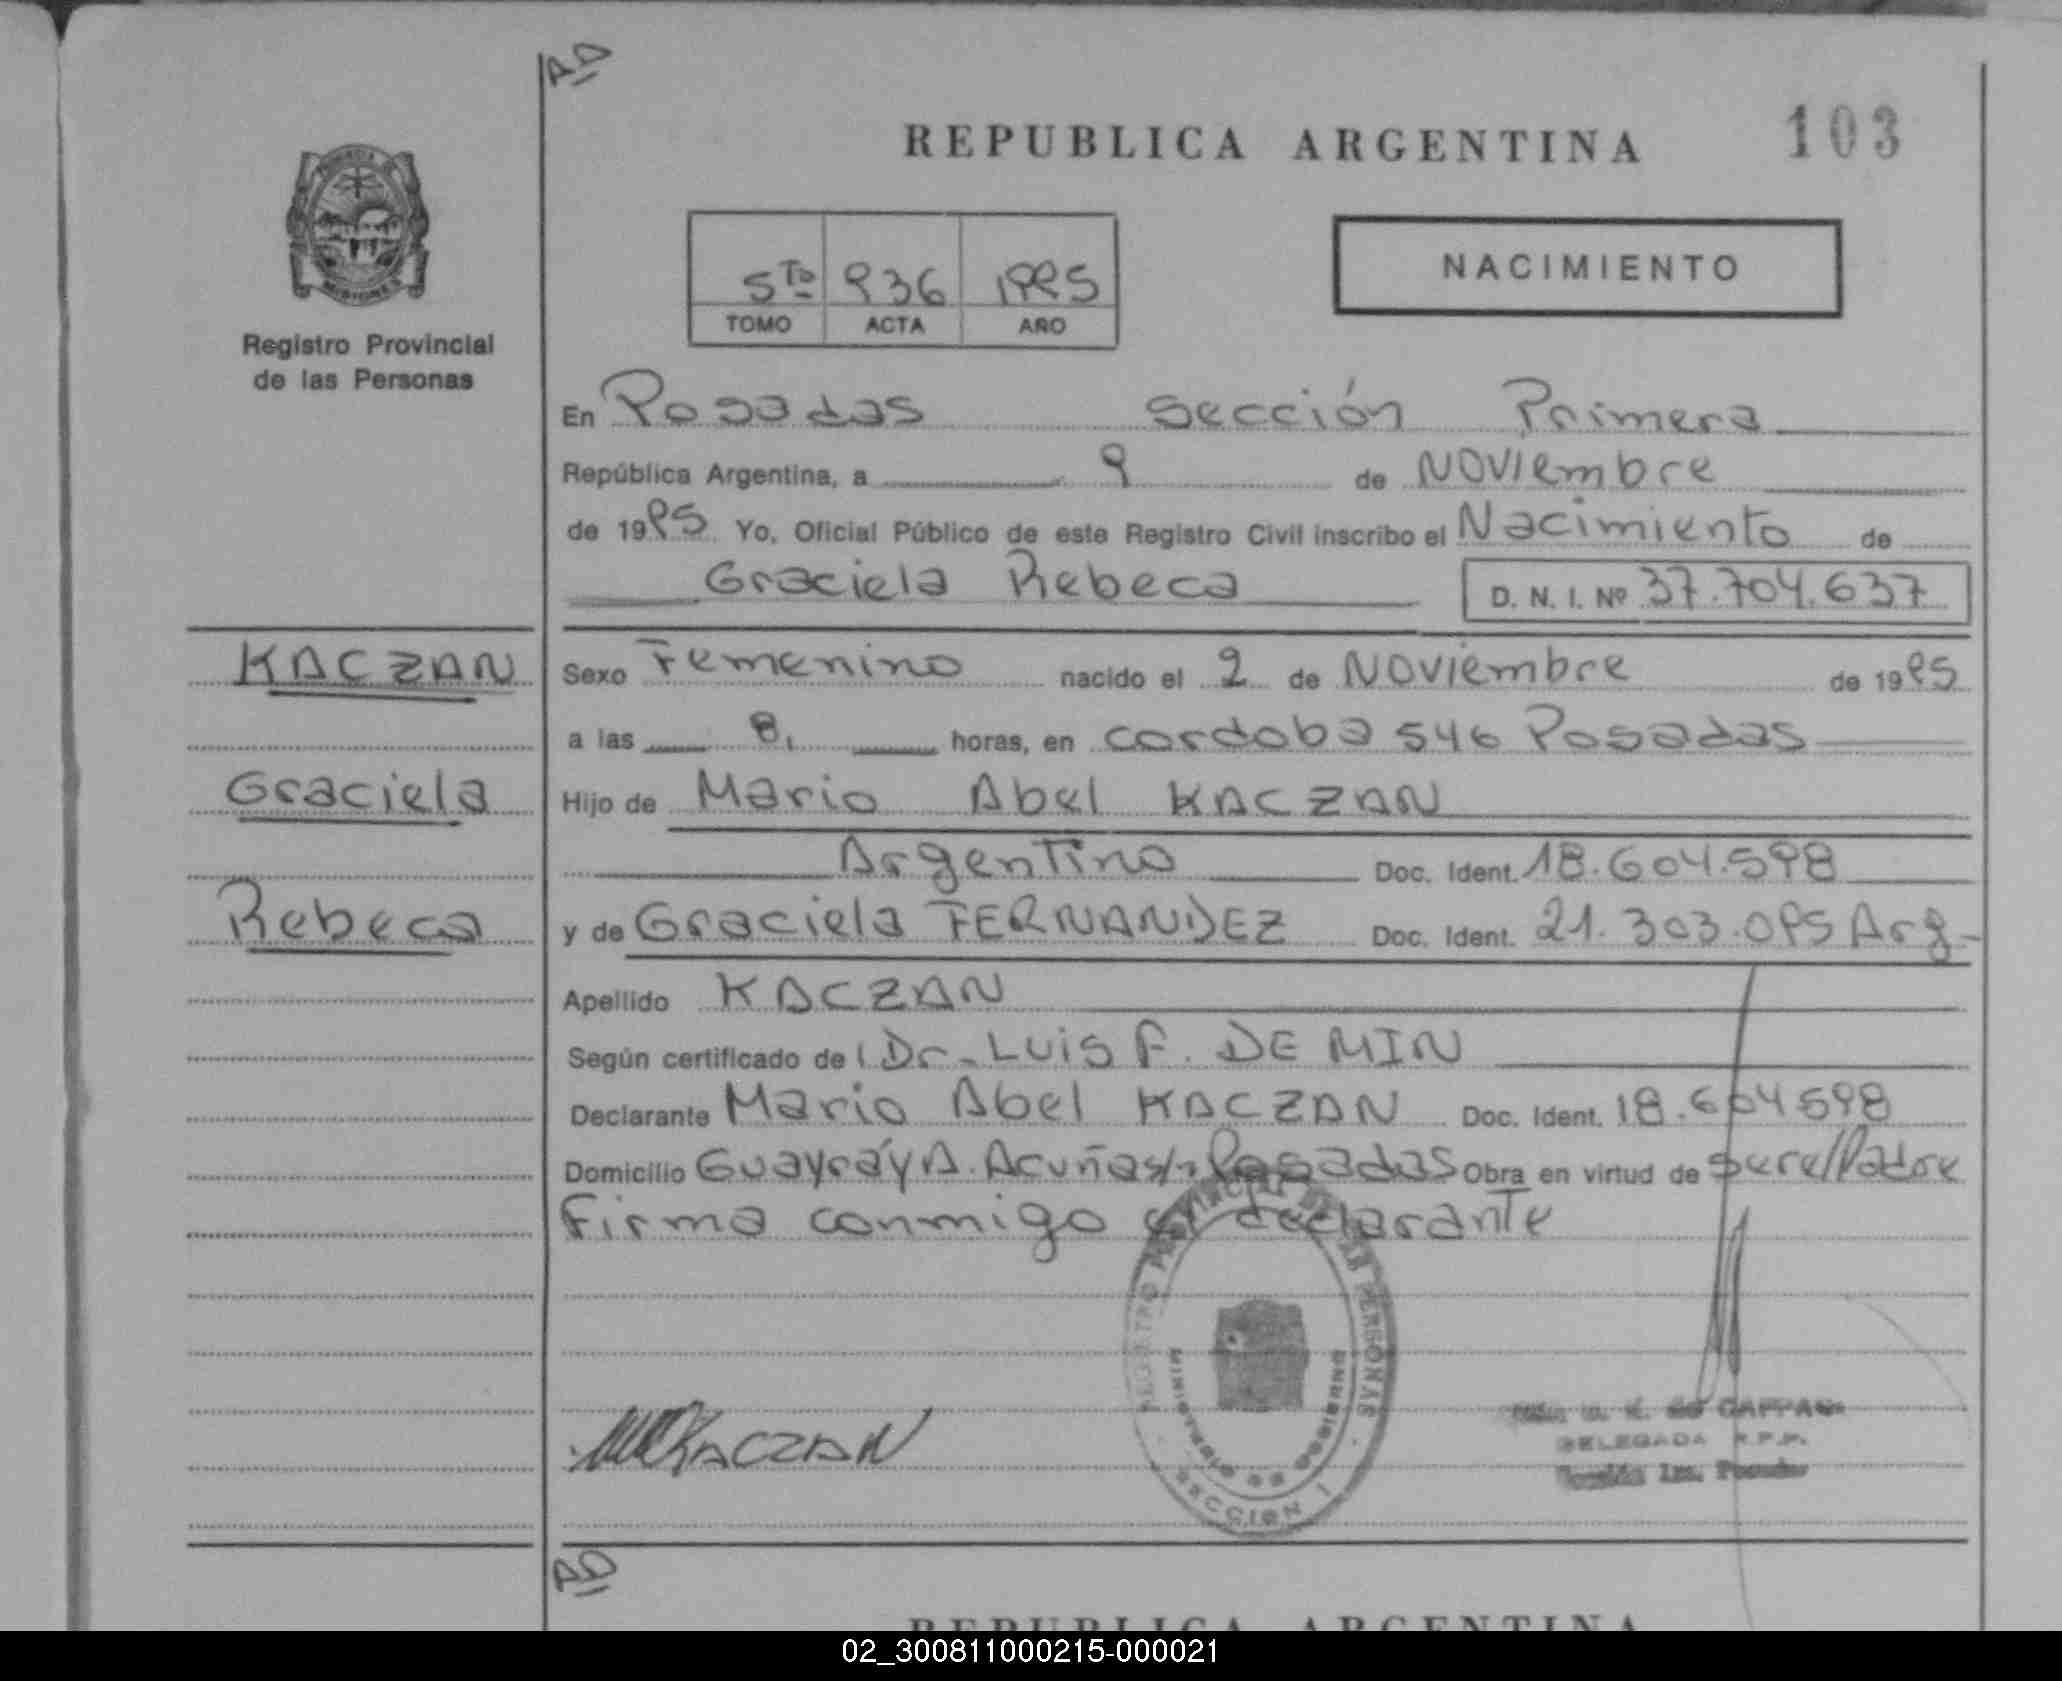 AD
REPUBLICA ARGENTINA 103
NACIMIENTO
5to 936 1995
TOMO ACTA AÑO
MISIONES
Registro Provincial
de las Personas
En Posadas sección Primera
República Argentina, a 9 de Noviembre
de 1995 Yo, Oficial Público de este Registro Civil inscribo el Nacimiento de
Graciela Rebeca D. N. I. Nº 37.704.637
KACZAN
Graciela
Rebeca
Sexo Femenino nacido el 2 de Noviembre de 1995
a las 8, horas, en cordoba 546 Posadas
Hijo de Mario Abel KACZAN
Argentino Doc. Ident. 18.604.598
y de Graciela FERNANDEZ Doc. Ident. 21.303.095 Arg-
Apellido KACZAN
Según certificado de Dr. Luis F. DE MIN
Declarante Mario Abel KACZAN Doc. Ident. 18.604598
Domicilio Guayray A. Acuña s/n Posadas Obra en virtud de ser el Padre
Firma conmigo el declarante
KACZAN
REGISTRO PROVINCIAL DE LAS PERSONAS
MINISTERIO DE GOBIERNO
SECCION I
DELEGADA R.P.P.
Sección 1ra. Posadas
AD
REPUBLICA ARGENTINA
02_300811000215-000021